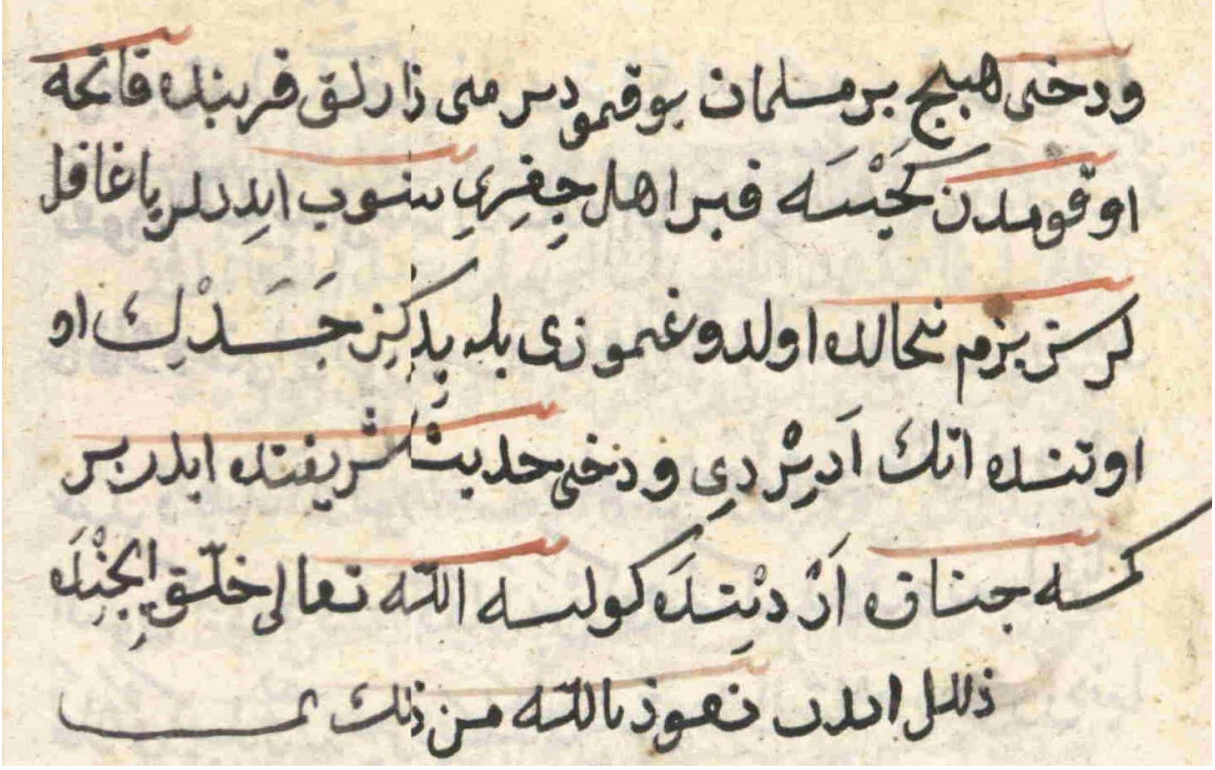 ودخى هيچ بر مسلمان يوقمودر مى زارلق قربنده فاتحه
اوقومدن كَچْسَه قبر اهل چِغِرِىِ سنوب ايدرلر يا غافل
لر سز بزم نحالده اولدوغموزى بله يدِكِز جَسَدْلِكْ او
اوتنده انك اَدِيْرْدِى و دخى حديث شريفنده ايدر بر
كمسه جنازه اَرْدنْتدَه كولسه الله تعالى خلق اِيچِنْدَه
ذليل ايدر نعوذ بالله من ذلك